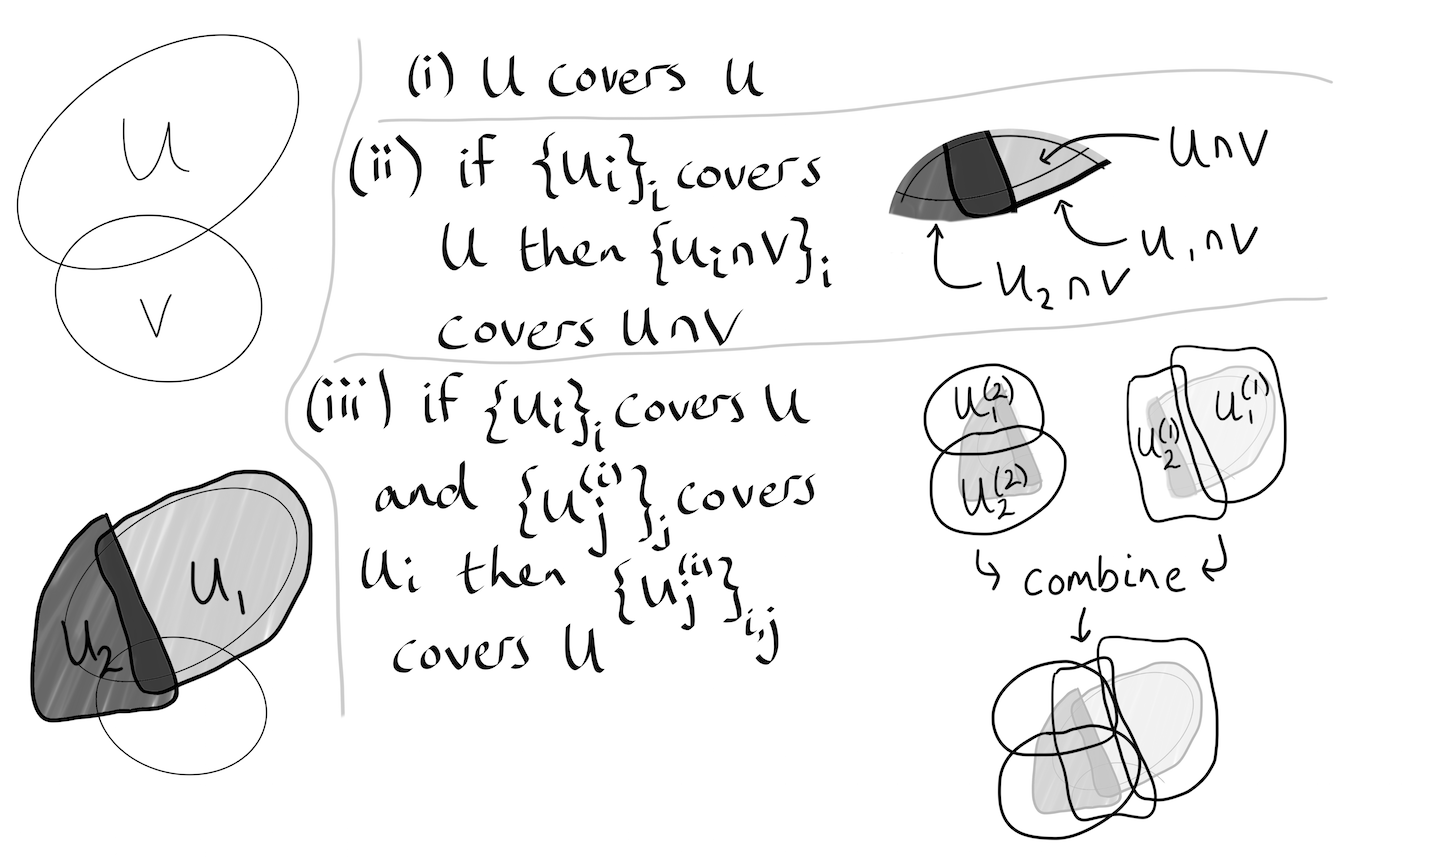 U
V
(i) U covers U
(ii) if {Ui}i covers
U then {Ui∩V}i
covers U∩V
U∩V
U₁∩V
U₂∩V
(iii) if {Ui}i covers U
and {Uj⁽ⁱ⁾}j covers
Ui then {Uj⁽ⁱ⁾}i,j
covers U
U₁
U₂
U₁⁽²⁾
U₂⁽²⁾
U₂⁽¹⁾
U₁⁽¹⁾
combine